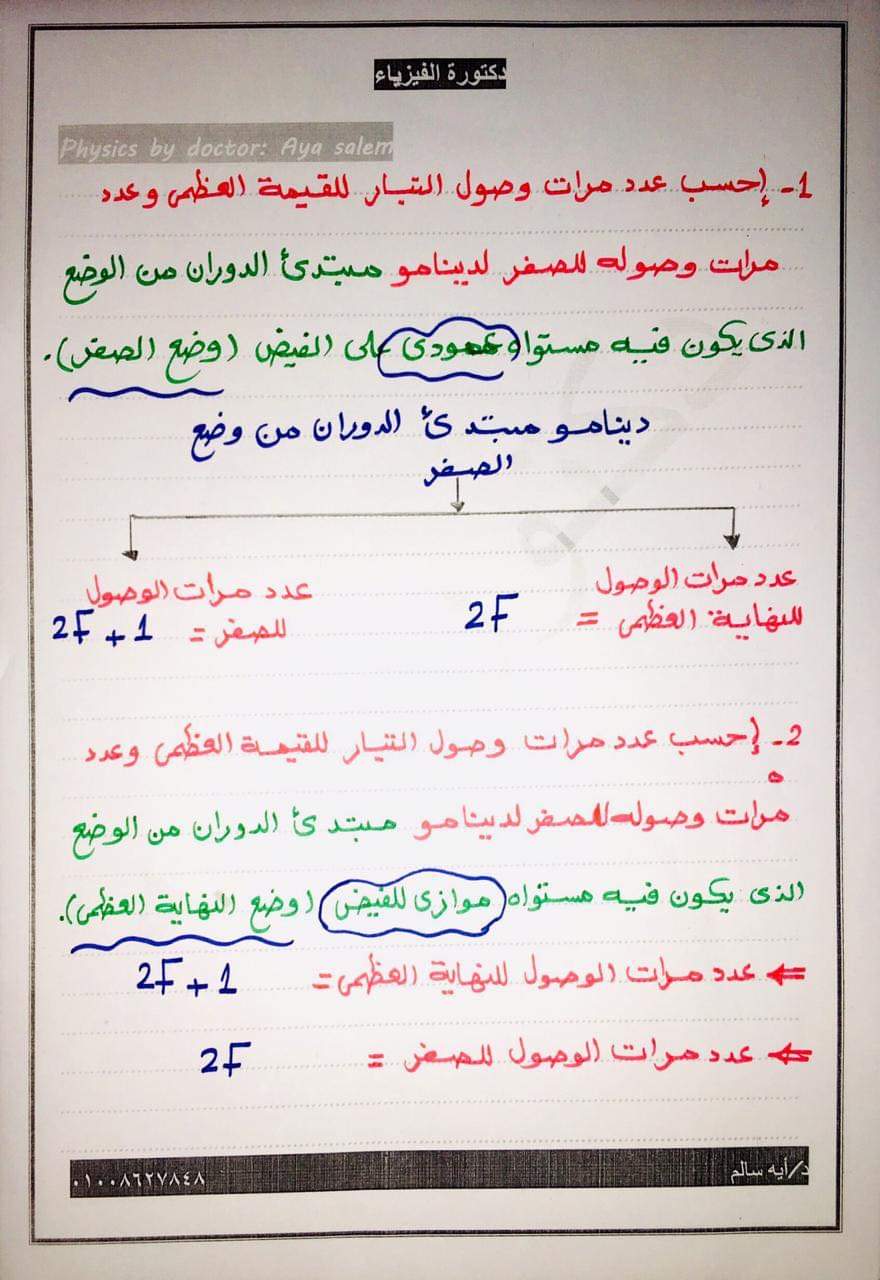 دكتورة الفيزياء
Physics by doctor: Aya salem
1- إحسب عدد مرات وصول التيار للقيمة العظمى وعدد
مرات وصوله للصفر لدينامو مبتدئ الدوران من الوضع
الذى يكون فيه مستواه عمودى على الفيض (وضع الصفر).
دينامو مبتدئ الدوران من وضع
الصفر
عدد مرات الوصول
للنهاية العظمى = 2F
عدد مرات الوصول
للصفر = 2F + 1
2- إحسب عدد مرات وصول التيار للقيمة العظمى وعدد
مرات وصوله للصفر لدينامو مبتدئ الدوران من الوضع
الذى يكون فيه مستواه موازى للفيض (وضع النهاية العظمى).
⇐ عدد مرات الوصول للنهاية العظمى = 2F + 1
⇐ عدد مرات الوصول للصفر = 2F
د/أيه سالم ٠١٠٠٨٦٢٧٨٤٨